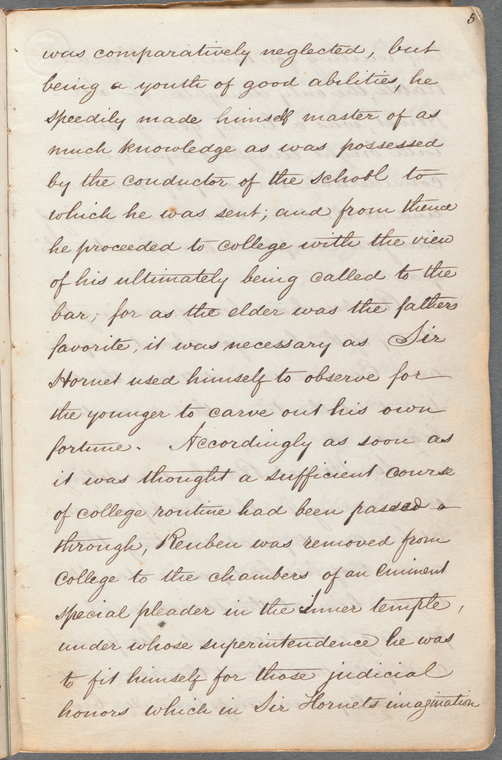 5
was comparatively neglected, but
being a youth of good abilities, he
speedily made himself master of as
much knowledge as was possessed
by the conductor of the school to
which he was sent; and from thence
he proceeded to college with the view
of his ultimately being called to the
bar; for as the elder was the fathers
favorite, it was necessary as Sir
Hornet used himself to observe for
the younger to carve out his own
fortune. Accordingly as soon as
it was thought a sufficient course
of college routine had been passed
through, Reuben was removed from
College to the chambers of an Eminent
special pleader in the Inner temple,
under whose superintendence he was
to fit himself for those judicial
honors which in Sir Hornets imagination